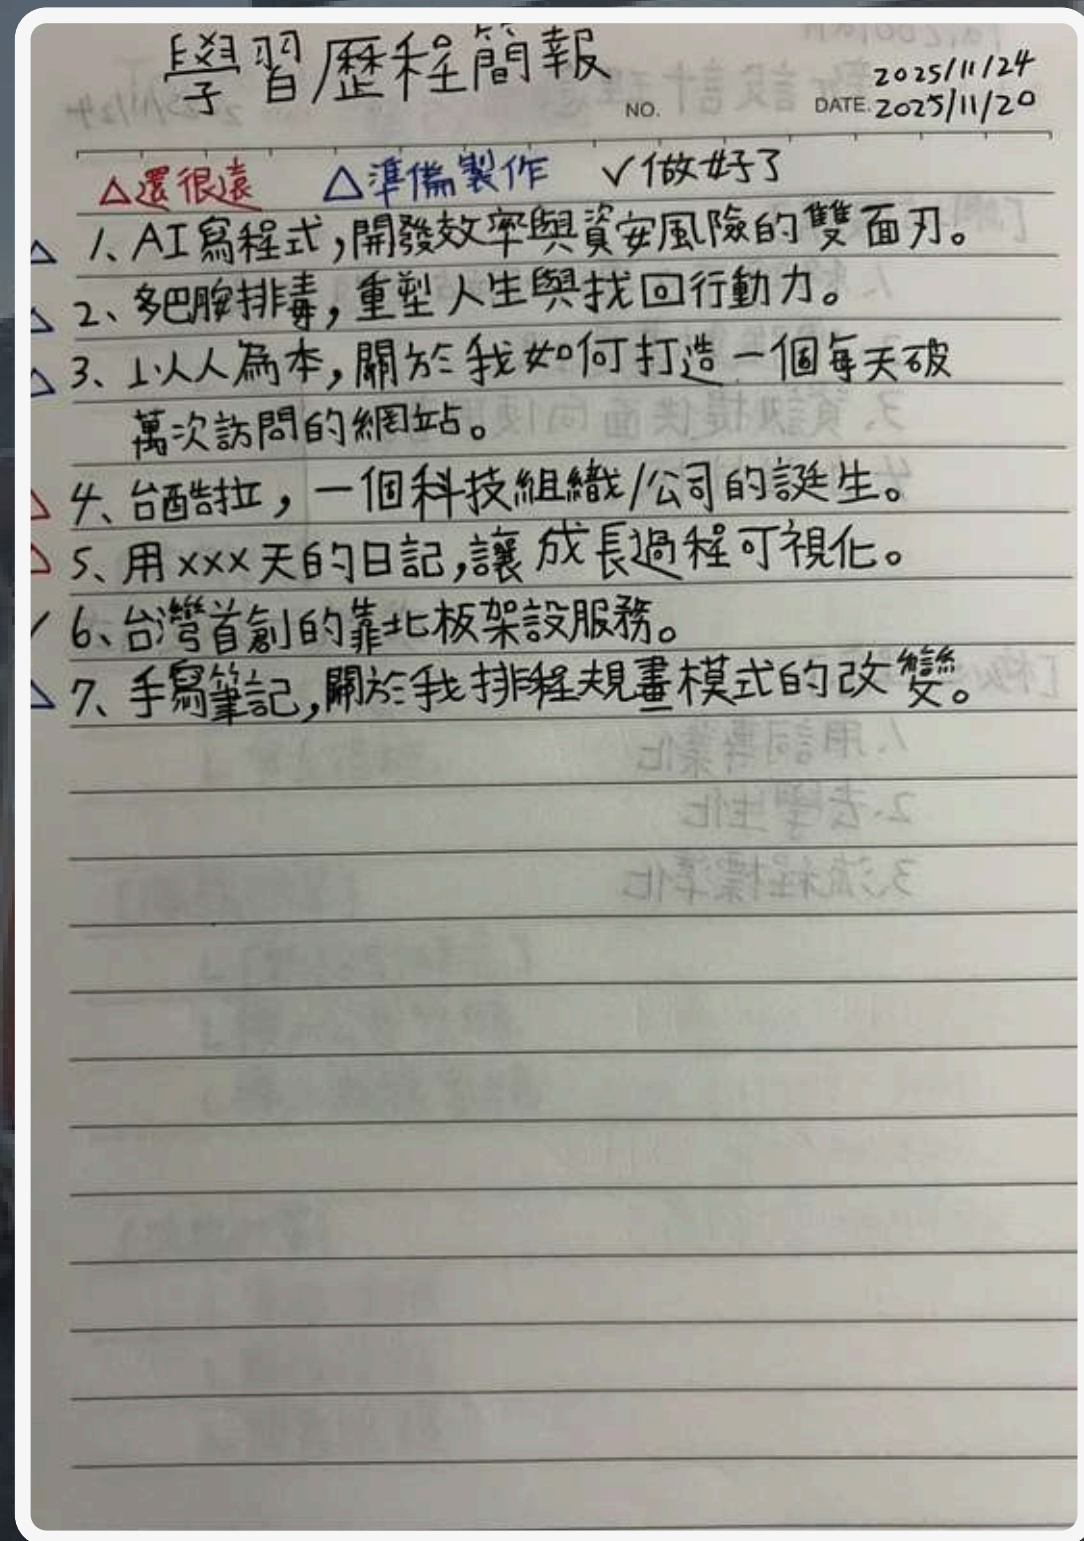 學習歷程簡報
2025/11/24
NO. DATE. 2025/11/20
△還很遠 △準備製作 ✓做好了
△ 1、AI寫程式,開發效率與資安風險的雙面刃。
△ 2、多巴胺排毒,重塑人生與找回行動力。
△ 3、以人為本,關於我如何打造一個每天破
萬次訪問的網站。
△ 4、台酷拉,一個科技組織/公司的誕生。
△ 5、用xxx天的日記,讓成長過程可視化。
✓ 6、台灣首創的靠北板架設服務。
△ 7、手寫筆記,關於我排程規畫模式的改變。
1、用詞專業化
2、去學生化
3、流程標準化